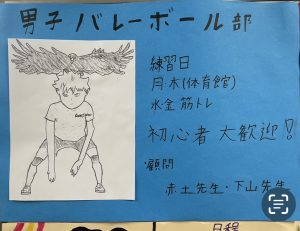 男子 バレーボール部
練習日
月・木(体育館)
水金 筋トレ
初心者 大歓迎!
顧問
赤土先生・下山先生
日程